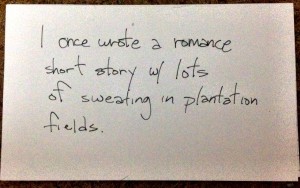 I once wrote a romance
short story w/ lots
of sweating in plantation
fields.